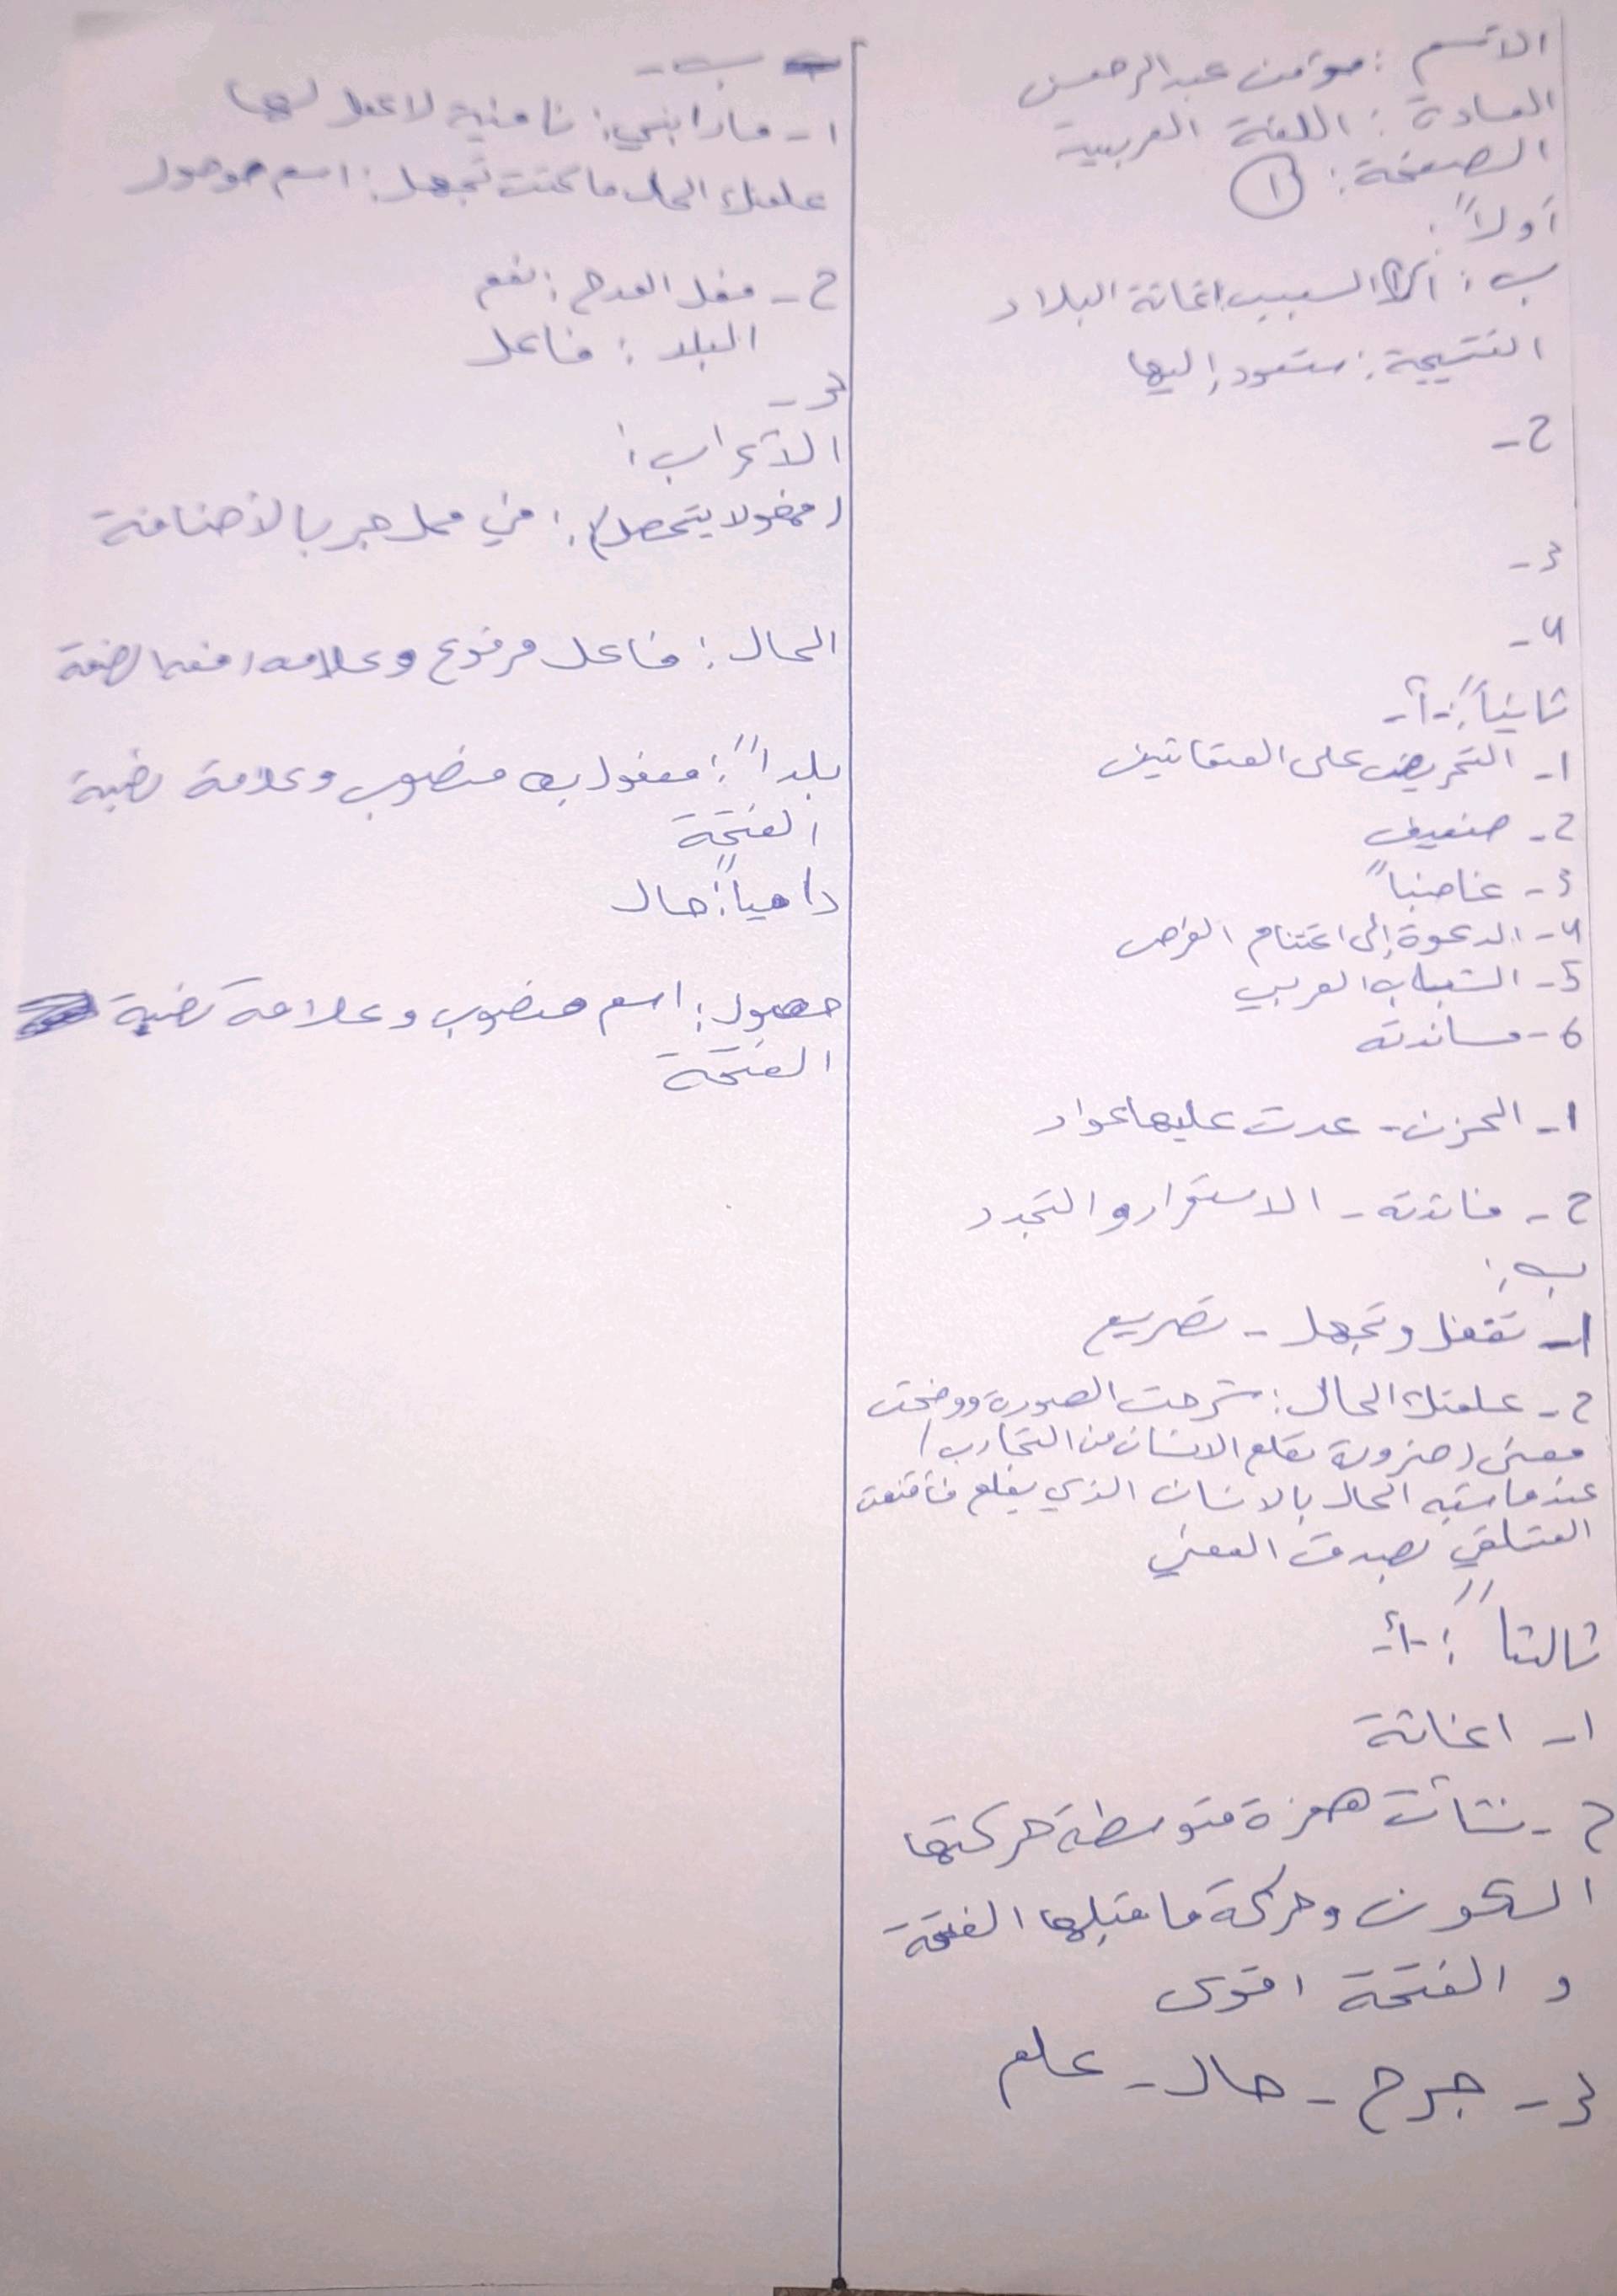 الاسم : مؤمن عبدالرحمن
المادة : اللغة العربية
الصفحة : ١
أولاً :
ب : السبب اغاثة البلاد
النتيجة : ستعود إليها
2 -
3 -
4 -
ثانياً : - أ -
1 - التحريض على المتقاتين
2 - ضعيف
3 - غاضباً
4 - الدعوة إلى اغتنام الفرص
5 - الشباب العربي
6 - مساندته
1 - الحزن - عدت عليها عواد
2 - فائدته - الاستقرار و التجدد
ب :
1 - تغفل وتجهل - تصريع
2 - علمتك الحال : شرحت الصورة ووضحت
معنى (ضرورة تعلم الانسان من التجارب)
عندما شبه الحال بالانسان الذي يعلم فأقنعت
المتلقي بصدق المعنى
ثالثاً : - أ -
1 - اغاثة
2 - نشأت همزة متوسطة حركتها
السكون وحركة ما قبلها الفتحة
و الفتحة اقوى
3 - جرح - حال - علم
ب -
1 - ماذا بني : نافية لا عمل لها
علمتك الحال ما كنت تجهل : اسم موصول
2 - فعل المدح : نعم
البلد : فاعل
3 -
الأعراب :
(يتحصل) : في محل جر بالأضافة
الحال : فاعل مرفوع وعلامة رفعه الضمة
بلداً : مفعول به منصوب وعلامة نصبه
الفتحة
دامياً : حال
حصول : اسم منصوب وعلامة نصبه
الفتحة